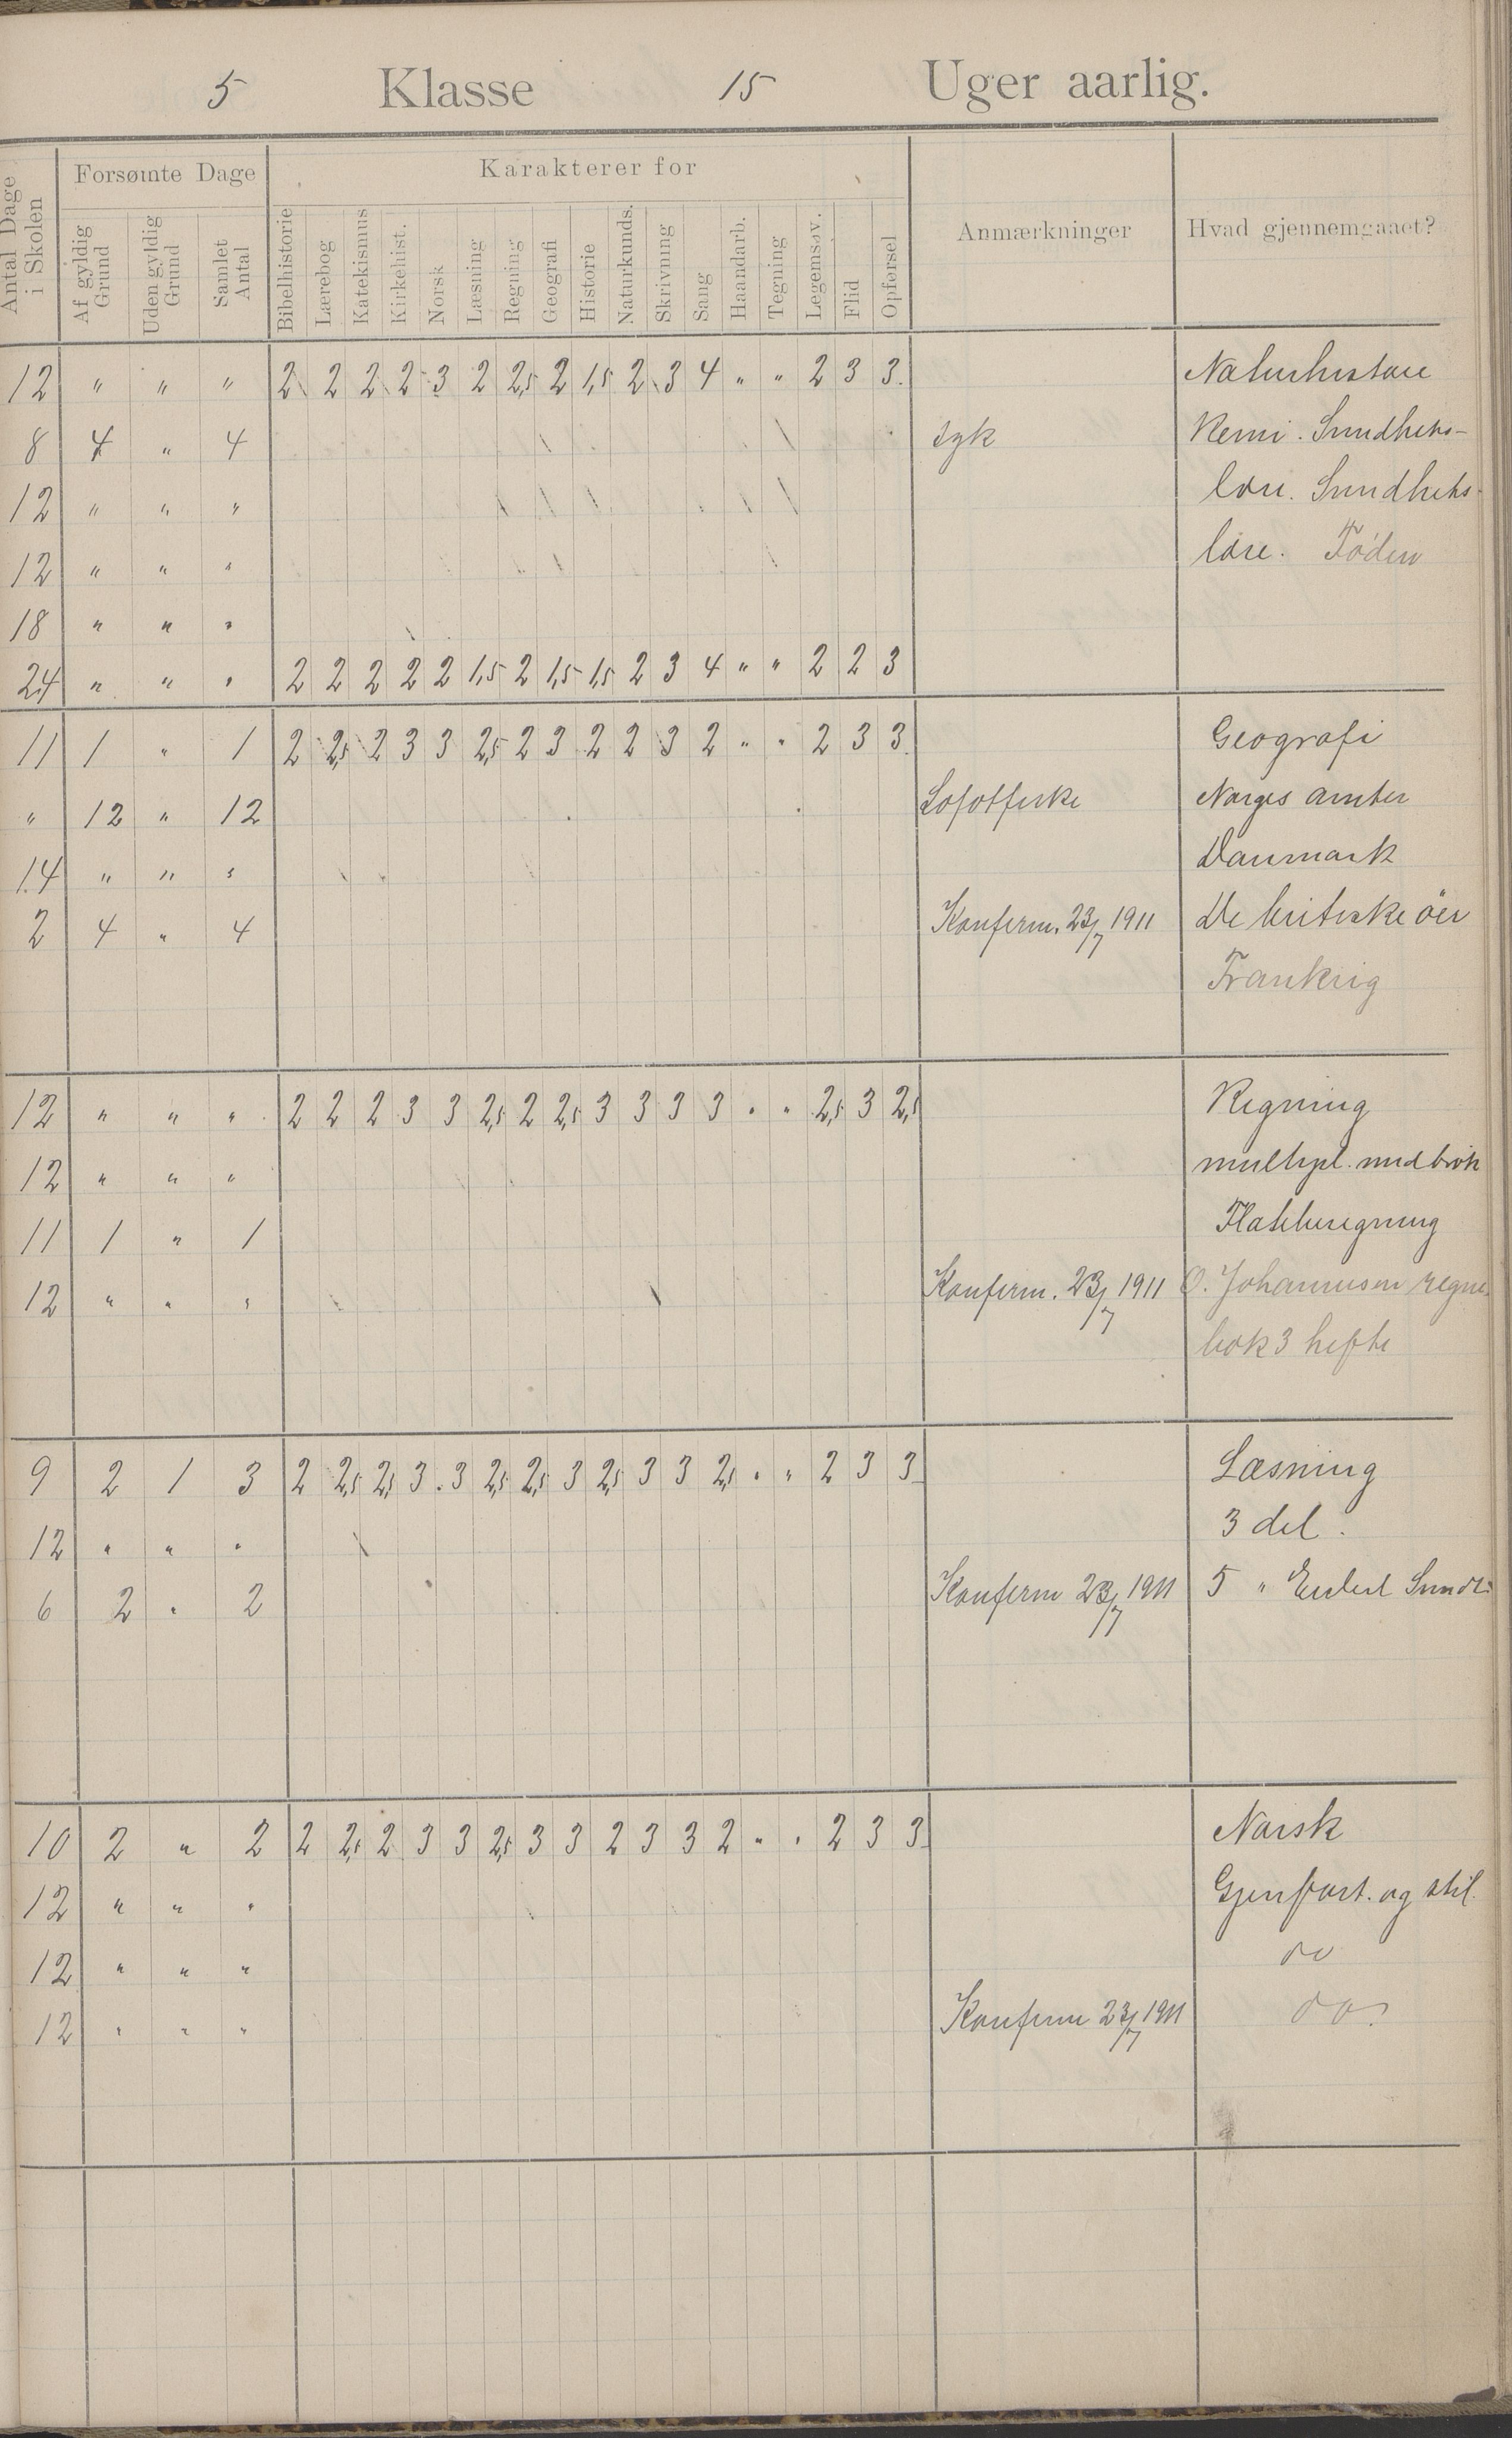 5 Klasse 15 Uger aarlig.
Antal Dage i Skolen
Forsømte Dage
Af gyldig Grund
Uden gyldig Grund
Samlet Antal
Karakterer for
Bibelhistorie Lærebog Katekismus Kirkehist. Norsk Læsning Regning Geografi Historie Naturkunds. Skrivning Sang Haandarb. Tegning Legemsøv. Flid Opførsel
Anmærkninger
Hvad gjennemgaaet?
12 " " " 2 2 2 2 3 2 2,5 2 1,5 2 3 4 " " 2 3 3. Naturhistorie
8 4 " 4 syk Kemi. Sundheds-
12 " " " lære. Sundheds-
12 " " " lære. Föden
18 " " "
24 " " " 2 2 2 2 2 1,5 2 1,5 1,5 2 3 4 " " 2 2 3
11 1 " 1 2 2,5 2 3 3 2,5 2 3 2 2 3 2 " " 2 3 3. Geografi
" 12 " 12 Lofotfiske Norges amter
14 " " " Danmark
2 4 " 4 Konferm. 23/7 1911 De britiske öer
Frankrig
12 " " " 2 2 2 3 3 2,5 2 2,5 3 3 3 3 " " 2,5 3 2,5 Regning
12 " " " multipl. med brök
11 1 " 1 Flateberegning
12 " " " Konferm. 23/7 1911 O. Johannesen regne-
bok 3 hefte
9 2 1 3 2 2,5 2,5 3 3 2,5 2,5 3 2,5 3 3 2,5 " " 2 3 3 Læsning
12 " " " 3 del.
6 2 " 2 Konferm 23/7 1911 5 " Eilert Sundt
10 2 " 2 2 2,5 2 3 3 2,5 3 3 2 3 3 2 " " 2 3 3 Norsk
12 " " " Gjenfort. og stil
12 " " " do
12 " " " Konferm 23/7 1911 do